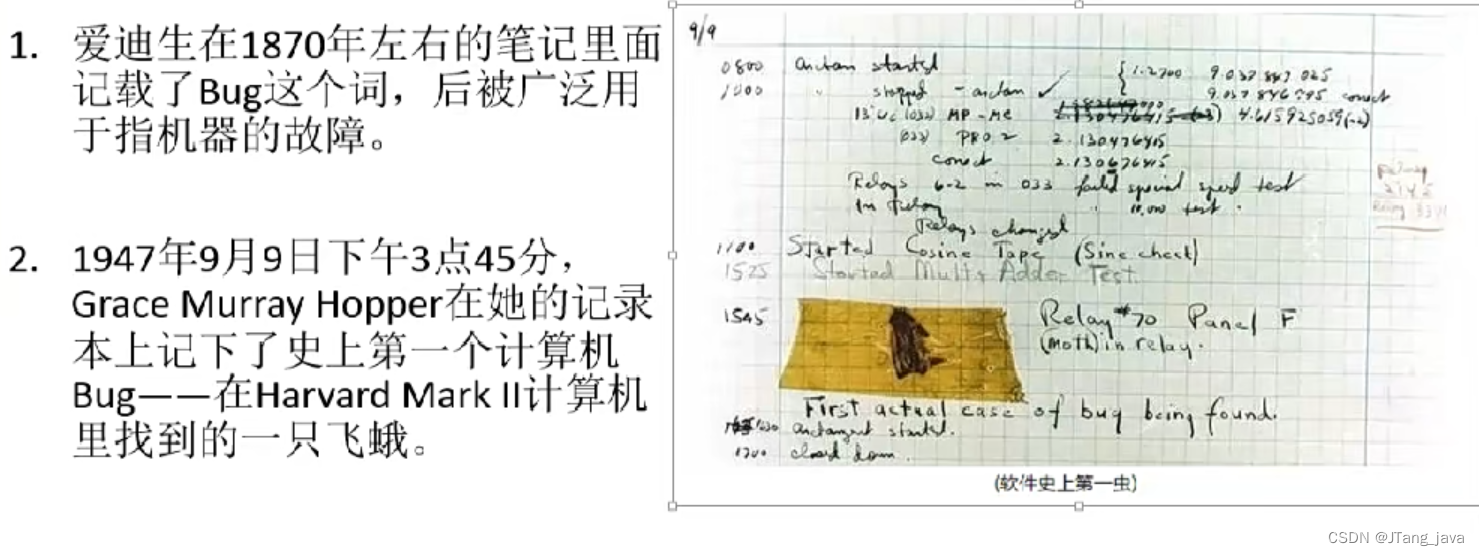 1. 爱迪生在1870年左右的笔记里面
记载了Bug这个词，后被广泛用
于指机器的故障。
2. 1947年9月9日下午3点45分，
Grace Murray Hopper在她的记录
本上记下了史上第一个计算机
Bug——在Harvard Mark II计算机
里找到的一只飞蛾。
9/9
0800 started
1000 stopped ✓
{1.2700 9.037 847 025
9.037 846 995 correct
13 (032) MP - MC 4.615925059(-2)
(033) PRO 2 2.130476415
correct 2.130676415
Relays 6-2 in 033 failed special speed test
in relay " 10,000 test.
Relays changed
1100 Started Cosine Tape (Sine check)
1525 Started Multi Adder Test.
1545 Relay #70 Panel F
(moth) in relay.
First actual case of bug being found.
started.
1700 closed down.
(软件史上第一虫)
CSDN @JTang_java